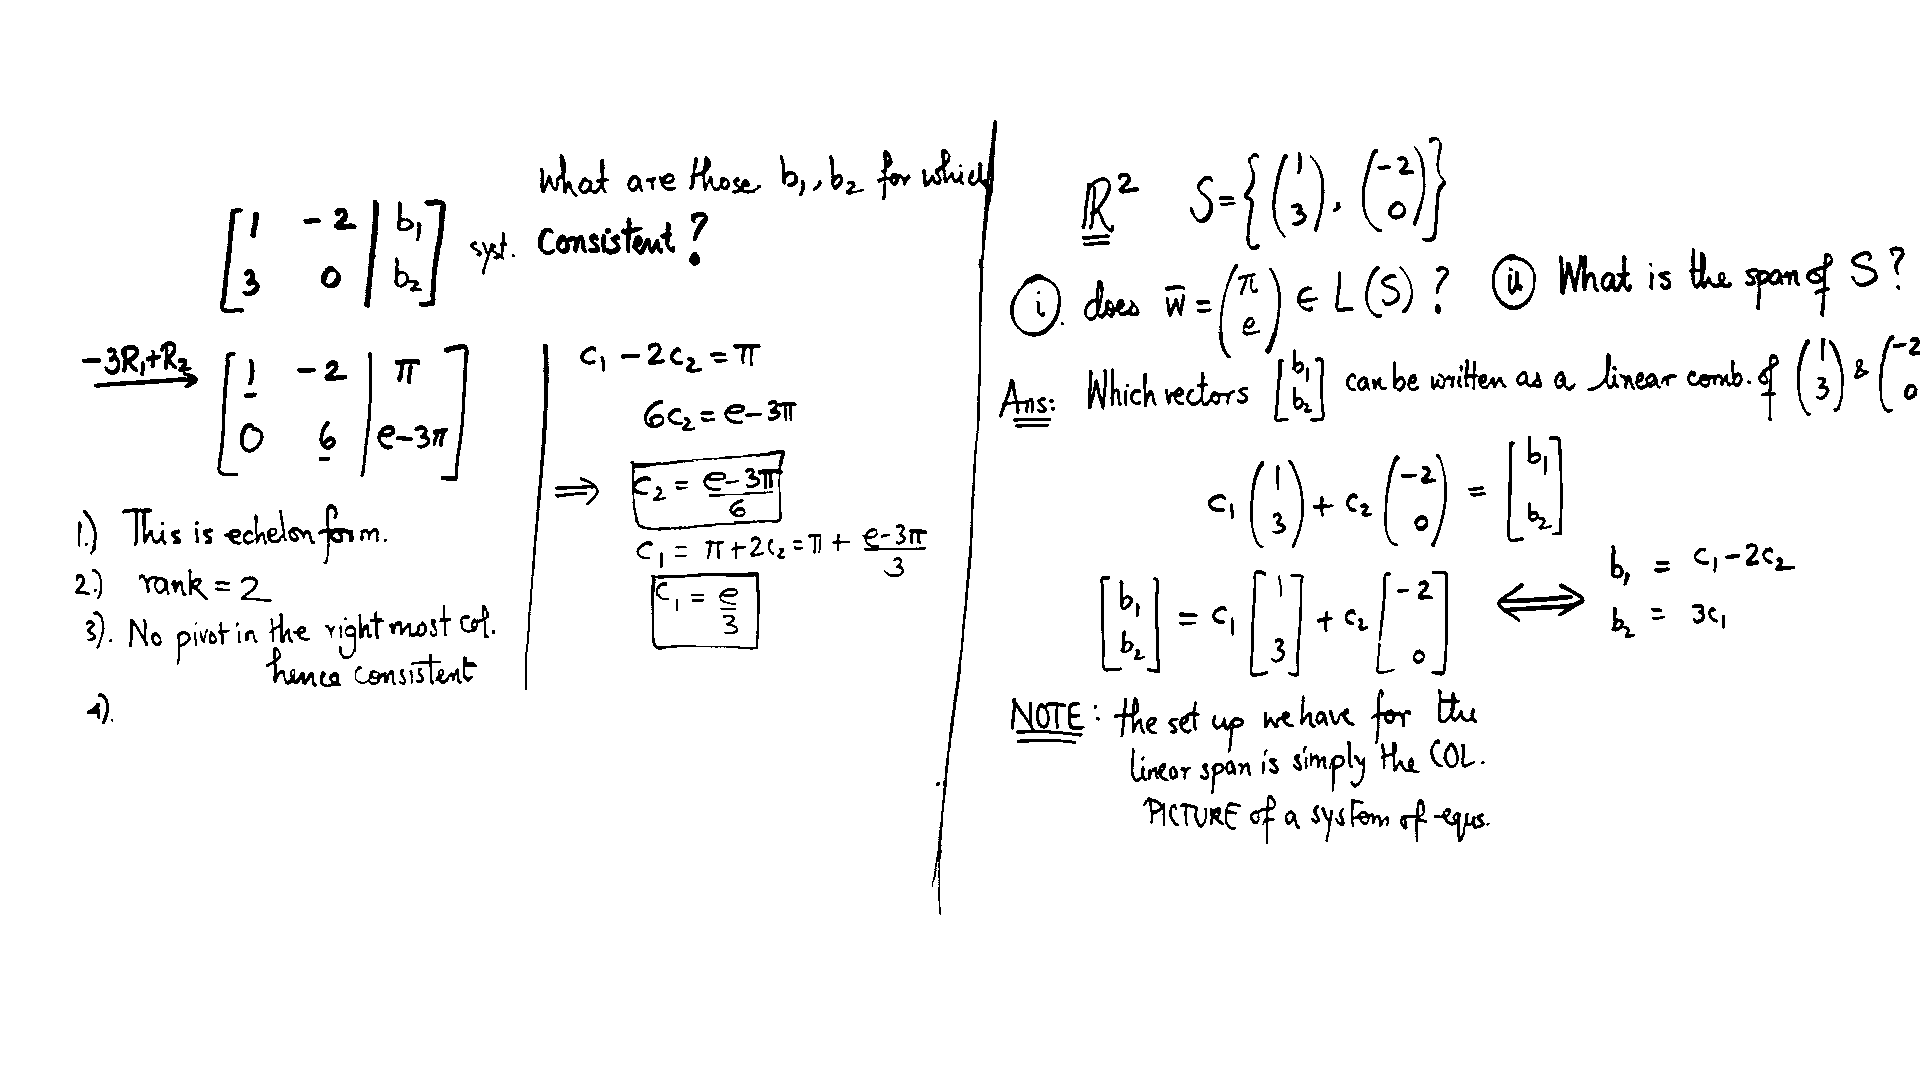 What are those b₁, b₂ for which
[ 1 -2 | b₁ ]
[ 3 0 | b₂ ] syst. Consistent?
-3R₁+R₂
[ 1 -2 | π ]
[ 0 6 | e-3π ]
1.) This is echelon form.
2.) rank = 2
3). No pivot in the rightmost col.
hence consistent
4).
c₁ - 2c₂ = π
6c₂ = e-3π
⟹ c₂ = (e-3π)/6
c₁ = π+2c₂ = π + (e-3π)/3
c₁ = e/3
ℝ² S = { (1 3), (-2 0) }
(i). does w̄ = (π e) ∈ L(S)? (ii) What is the span of S?
Ans: Which vectors [b₁ b₂] can be written as a linear comb. of (1 3) & (-2 0
c₁ (1 3) + c₂ (-2 0) = [b₁ b₂]
[b₁ b₂] = c₁ [1 3] + c₂ [-2 0] ⟺ b₁ = c₁-2c₂
b₂ = 3c₁
NOTE: the set up we have for the
linear span is simply the COL.
PICTURE of a system of equs.